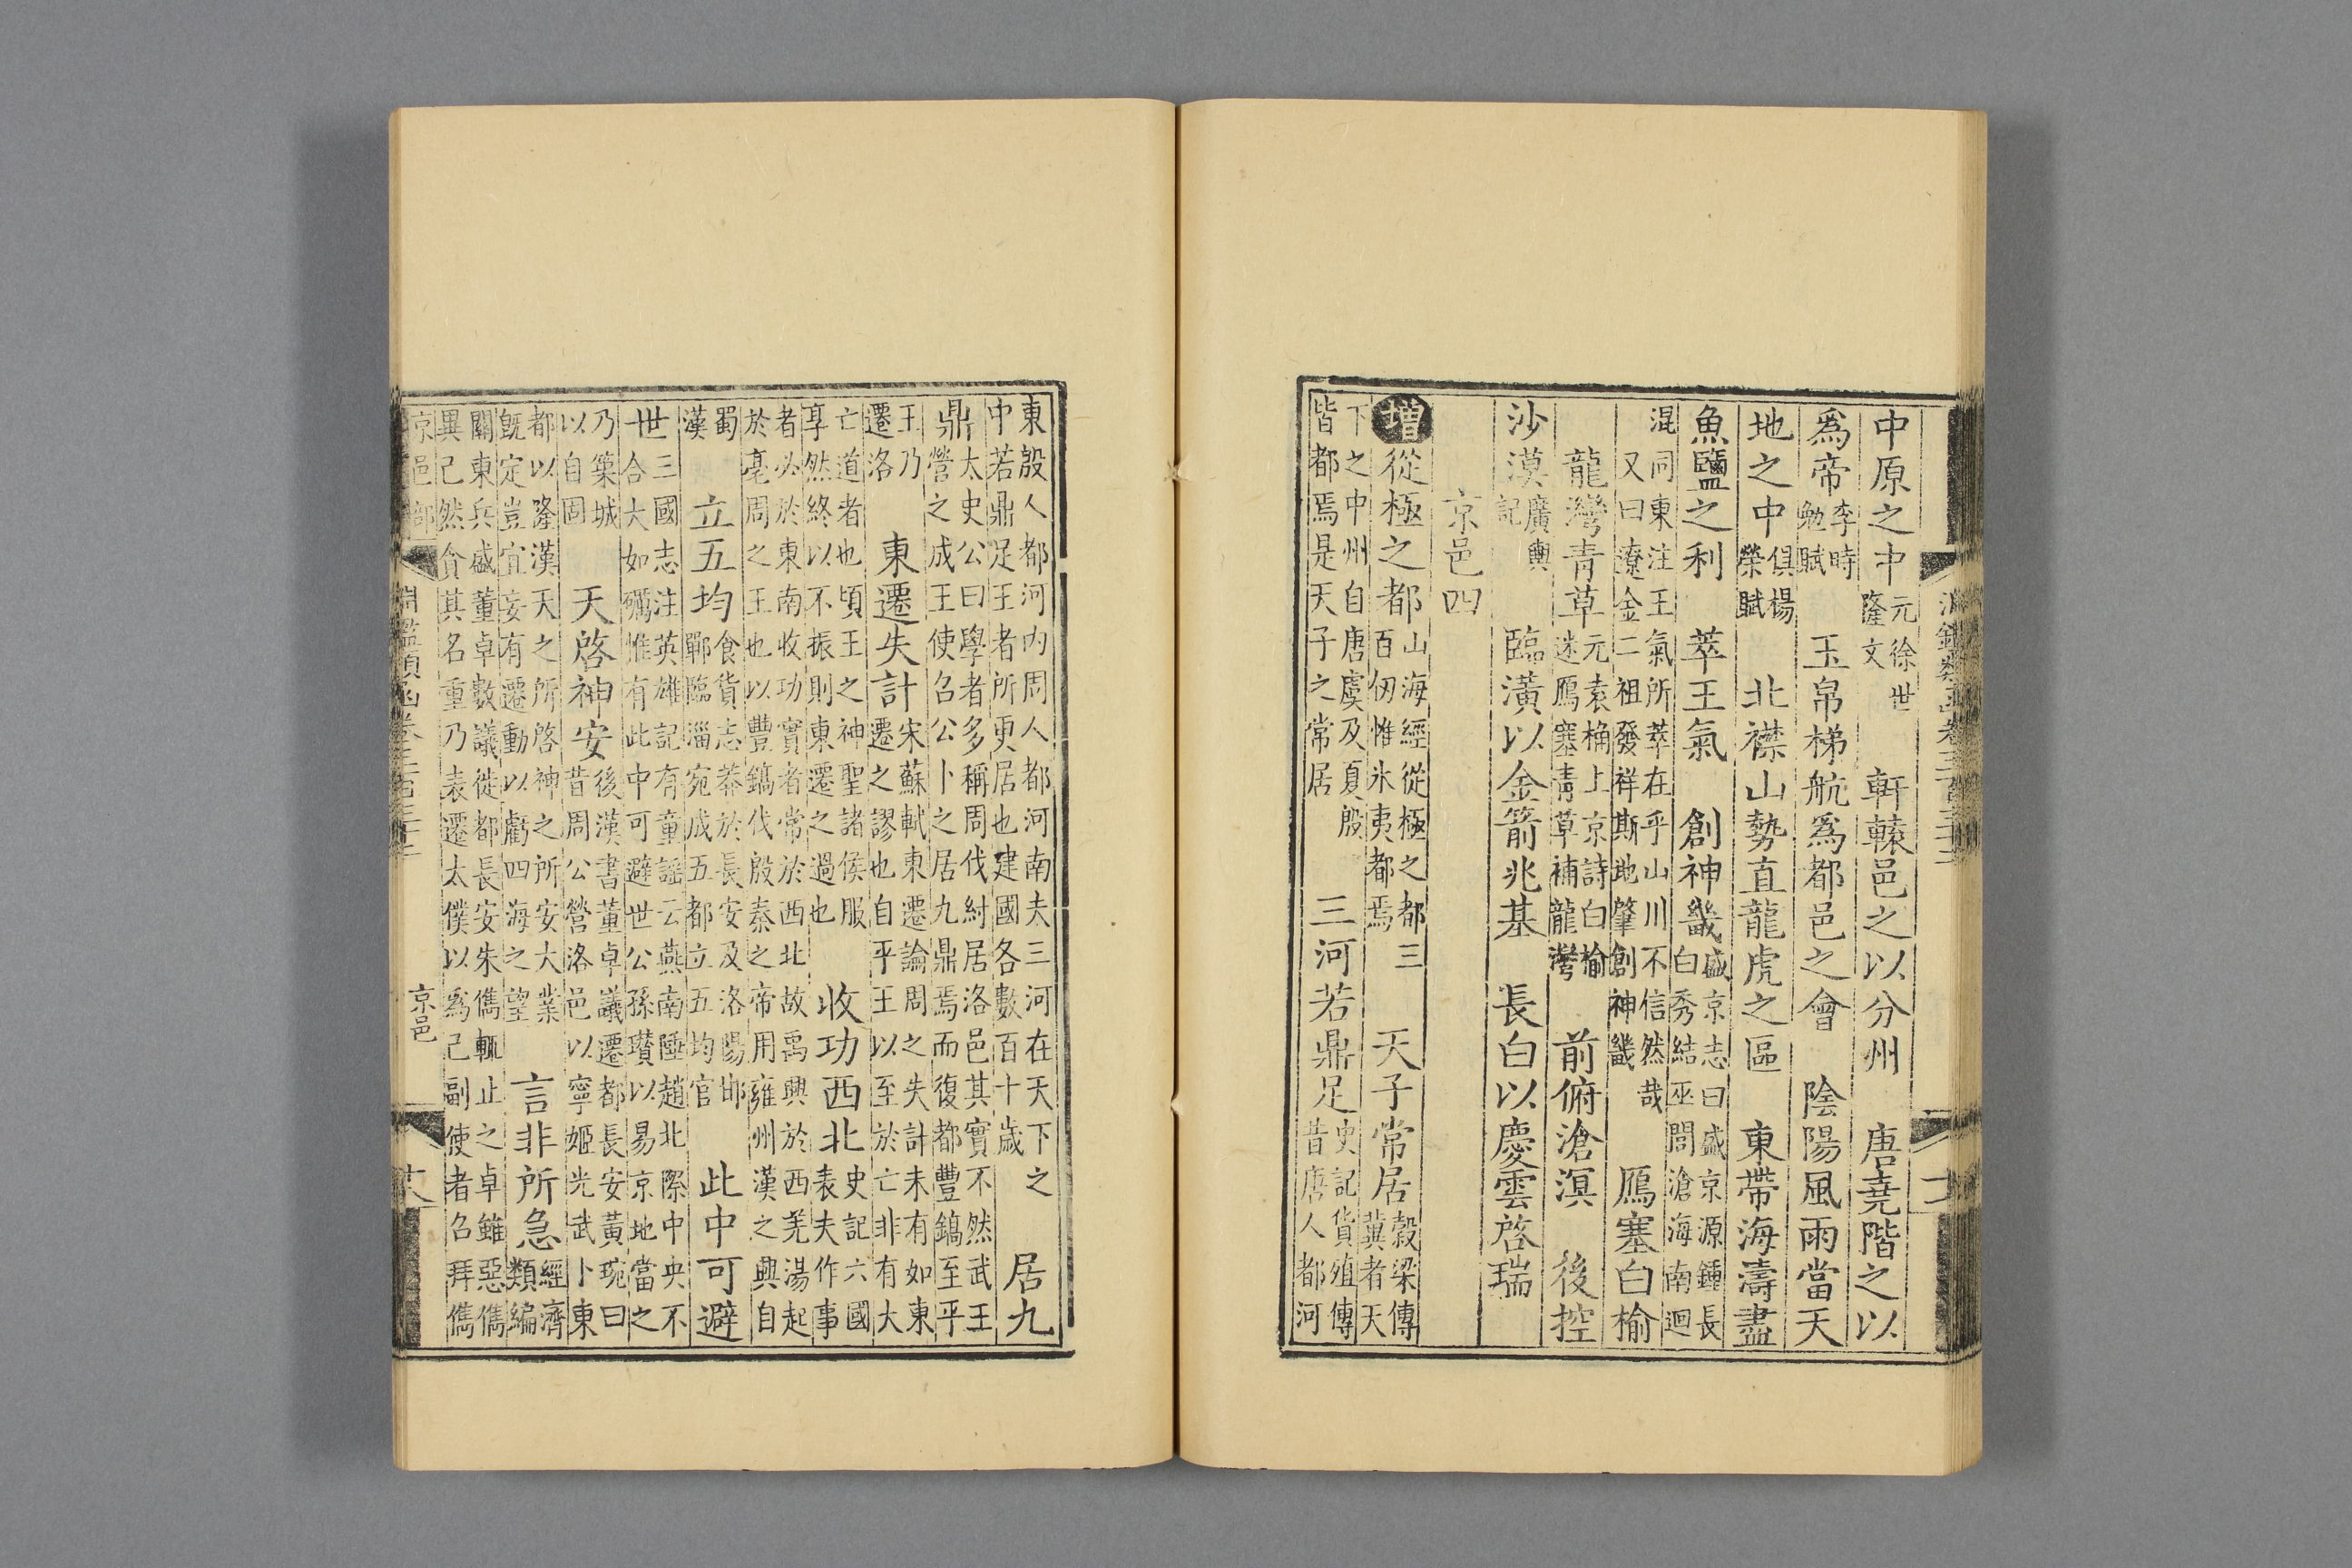 中原之中元徐世隆文　軒轅邑之以分州　唐堯階之以
爲帝李時勉賦　玉帛梯航爲都邑之會　陰陽風雨當天
地之中俱楊榮賦　北襟山勢直龍虎之區　東帶海濤盡
魚鹽之利　萃王氣　創神畿盛京志曰盛京源鍾長白秀結巫閭滄海南迴
混同東注王氣所萃在乎山川不信然哉又曰遼金二祖發祥斯地肇創神畿　鴈塞白榆
龍灣青草元袁桷上京詩白榆迷鴈塞青草補龍灣　前俯滄溟　後控
沙漠廣輿記　臨潢以金箭兆基　長白以慶雲啓瑞
京邑四
增從極之都山海經從極之都三百仞惟氷夷都焉　天子常居穀梁傳冀者天
下之中州自唐虞及夏殷皆都焉是天子之常居　三河若鼎足史記貨殖傳昔唐人都河
東殷人都河內周人都河南夫三河在天下之中若鼎足王者所更居也建國各數百十歲　居九
鼎太史公曰學者多稱周伐紂居洛邑其實不然武王營之成王使召公卜之居九鼎焉而復都豐鎬至平
王乃遷洛　東遷失計宋蘇軾東遷論周之失計未有如東遷之謬也自平王以至於亡非有大
亡道者也頃王之神聖諸侯服享然終以不振則東遷之過也　收功西北史記六國表夫作事
者必於東南收功實者常於西北故禹興於西羌湯起於亳周之王也以豐鎬伐殷秦之帝用雍州漢之興自
蜀漢　立五均食貨志莽於長安及洛陽邯鄲臨淄宛成五都立五均官　此中可避
世三國志注英雄記有童謠云燕南陲趙北際中央不合大如礪惟有此中可避世公孫瓚以易京地當之
乃築城以自固　天啓神安後漢書董卓議遷都長安黃琬曰昔周公營洛邑以寧姬光武卜東
都以隆漢天之所啓神之所安大業既定豈宜妄有遷動以虧四海之望　言非所急經濟類編
關東兵盛董卓數議徙都長安朱儁輒止之卓雖惡儁異己然貪其名重乃表遷太僕以爲己副使者召拜儁
京邑部　淵鑑類函卷三百三十三　京邑